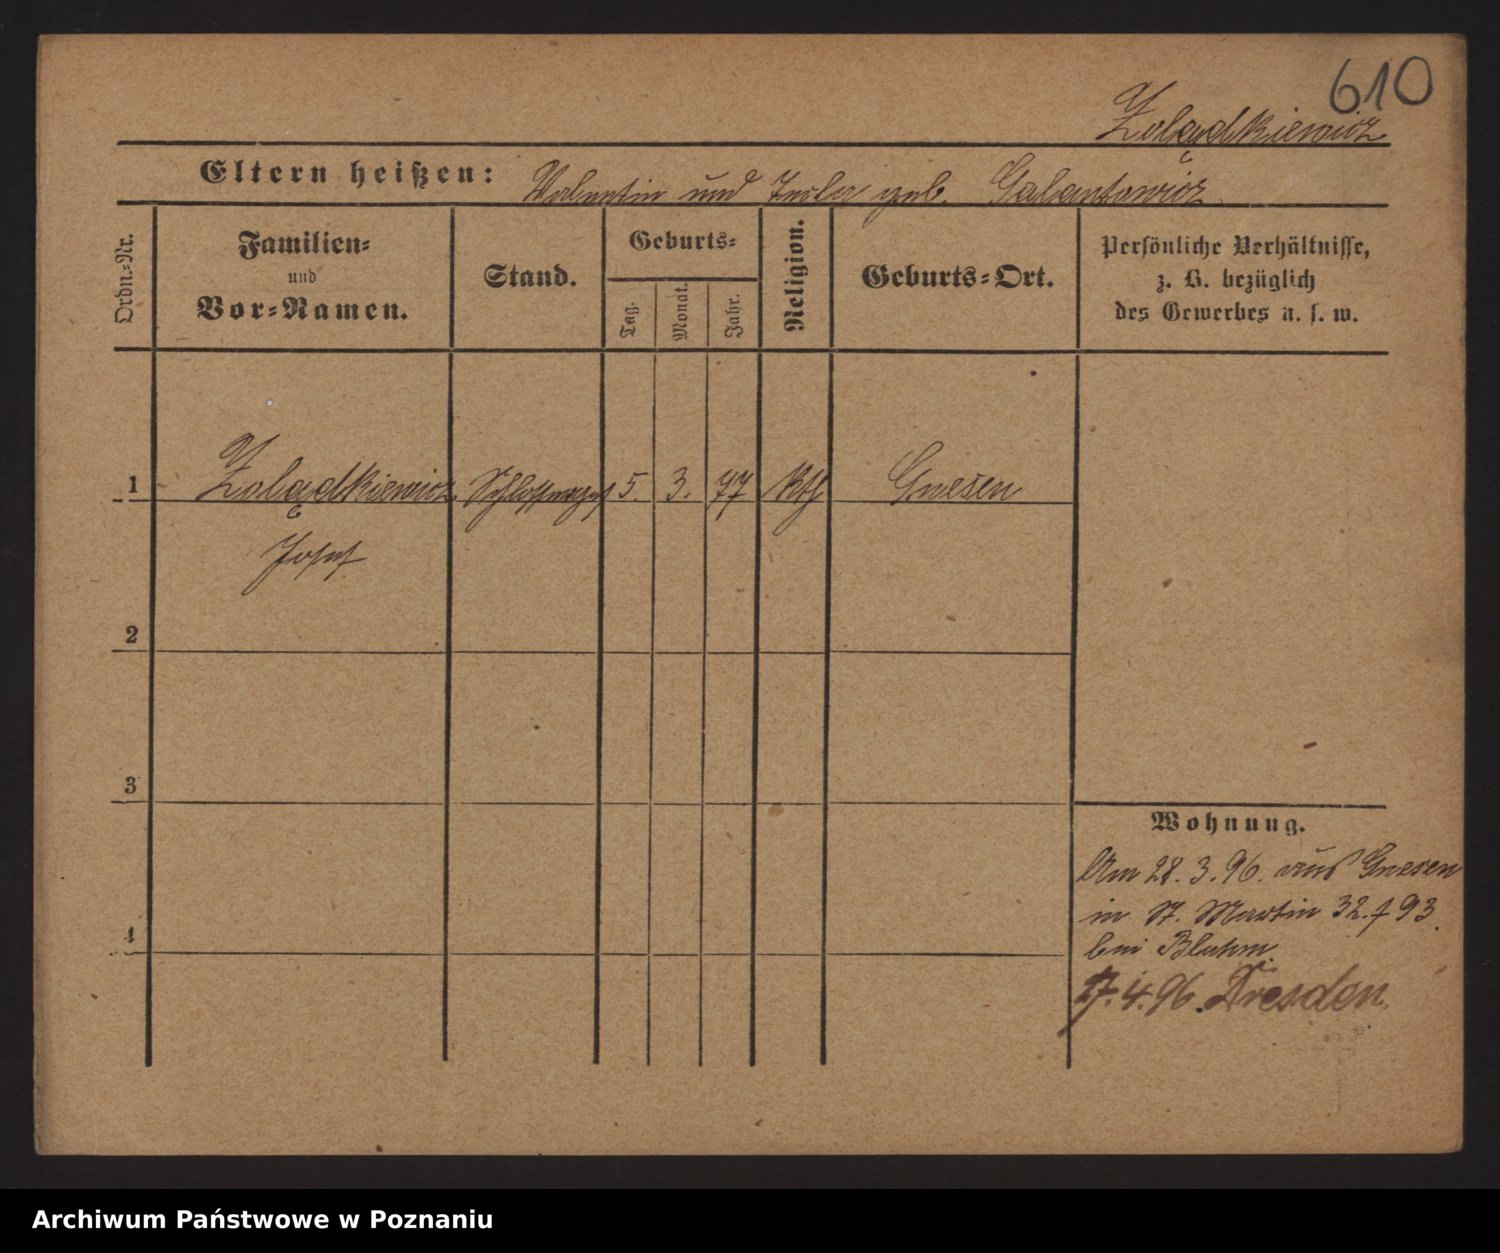 610
Żolądkiewicz
Eltern heißen: Valentin und geb. Galantowicz
Ordn.=Nr.
Familien=
und
Vor=Namen.
Stand.
Geburts=
Tag.
Monat.
Jahr.
Religion.
Geburts=Ort.
Persönliche Verhältnisse,
z. B. bezüglich
des Gewerbes u. s. w.
1 Żolądkiewicz Schlosserges 5. 3. 77 Kth Gnesen
Josef
2
3
4
Wohnung.
Am 28. 3. 96. aus Gnesen
in St. Martin 32. f 93.
bei Bluhm.
17. 4. 96. Dresden.
Archiwum Państwowe w Poznaniu